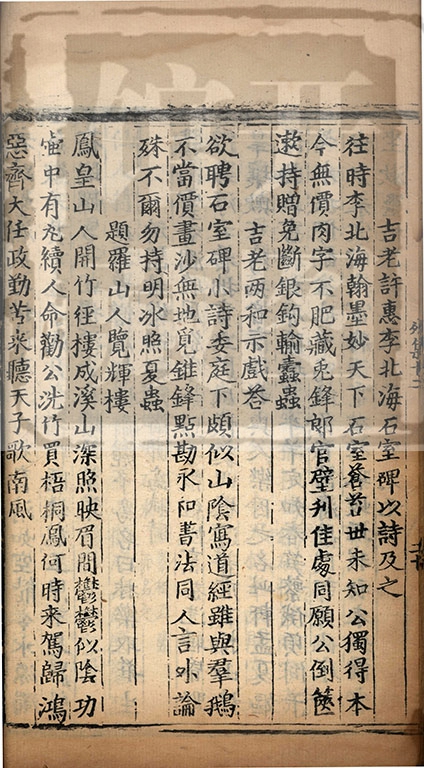 吉老許惠李北海石室碑以詩及之
往時李北海翰墨妙天下石室蒼苔世未知公獨得本
今無價肉字不肥藏兎鋒郎官壁刋佳處同願公倒篋
遬持贈免斷銀鈎輸蠹蟲
吉老两和示戲荅
欲聘石室碑小詩委庭下頗似山陰寫道經雖與羣鵝
不當價畫沙無地覓錐鋒點勘永和書法同人言外論
殊不爾勿持明冰照夏蟲
題羅山人覽輝樓
鳳皇山人開竹徑樓成溪山深照映眉間鬱鬱似陰功
壷中有丸續人命勸公洗竹買梧桐鳳何時来駕歸鴻
惡齊大任政勤苦来聽天子歌南風